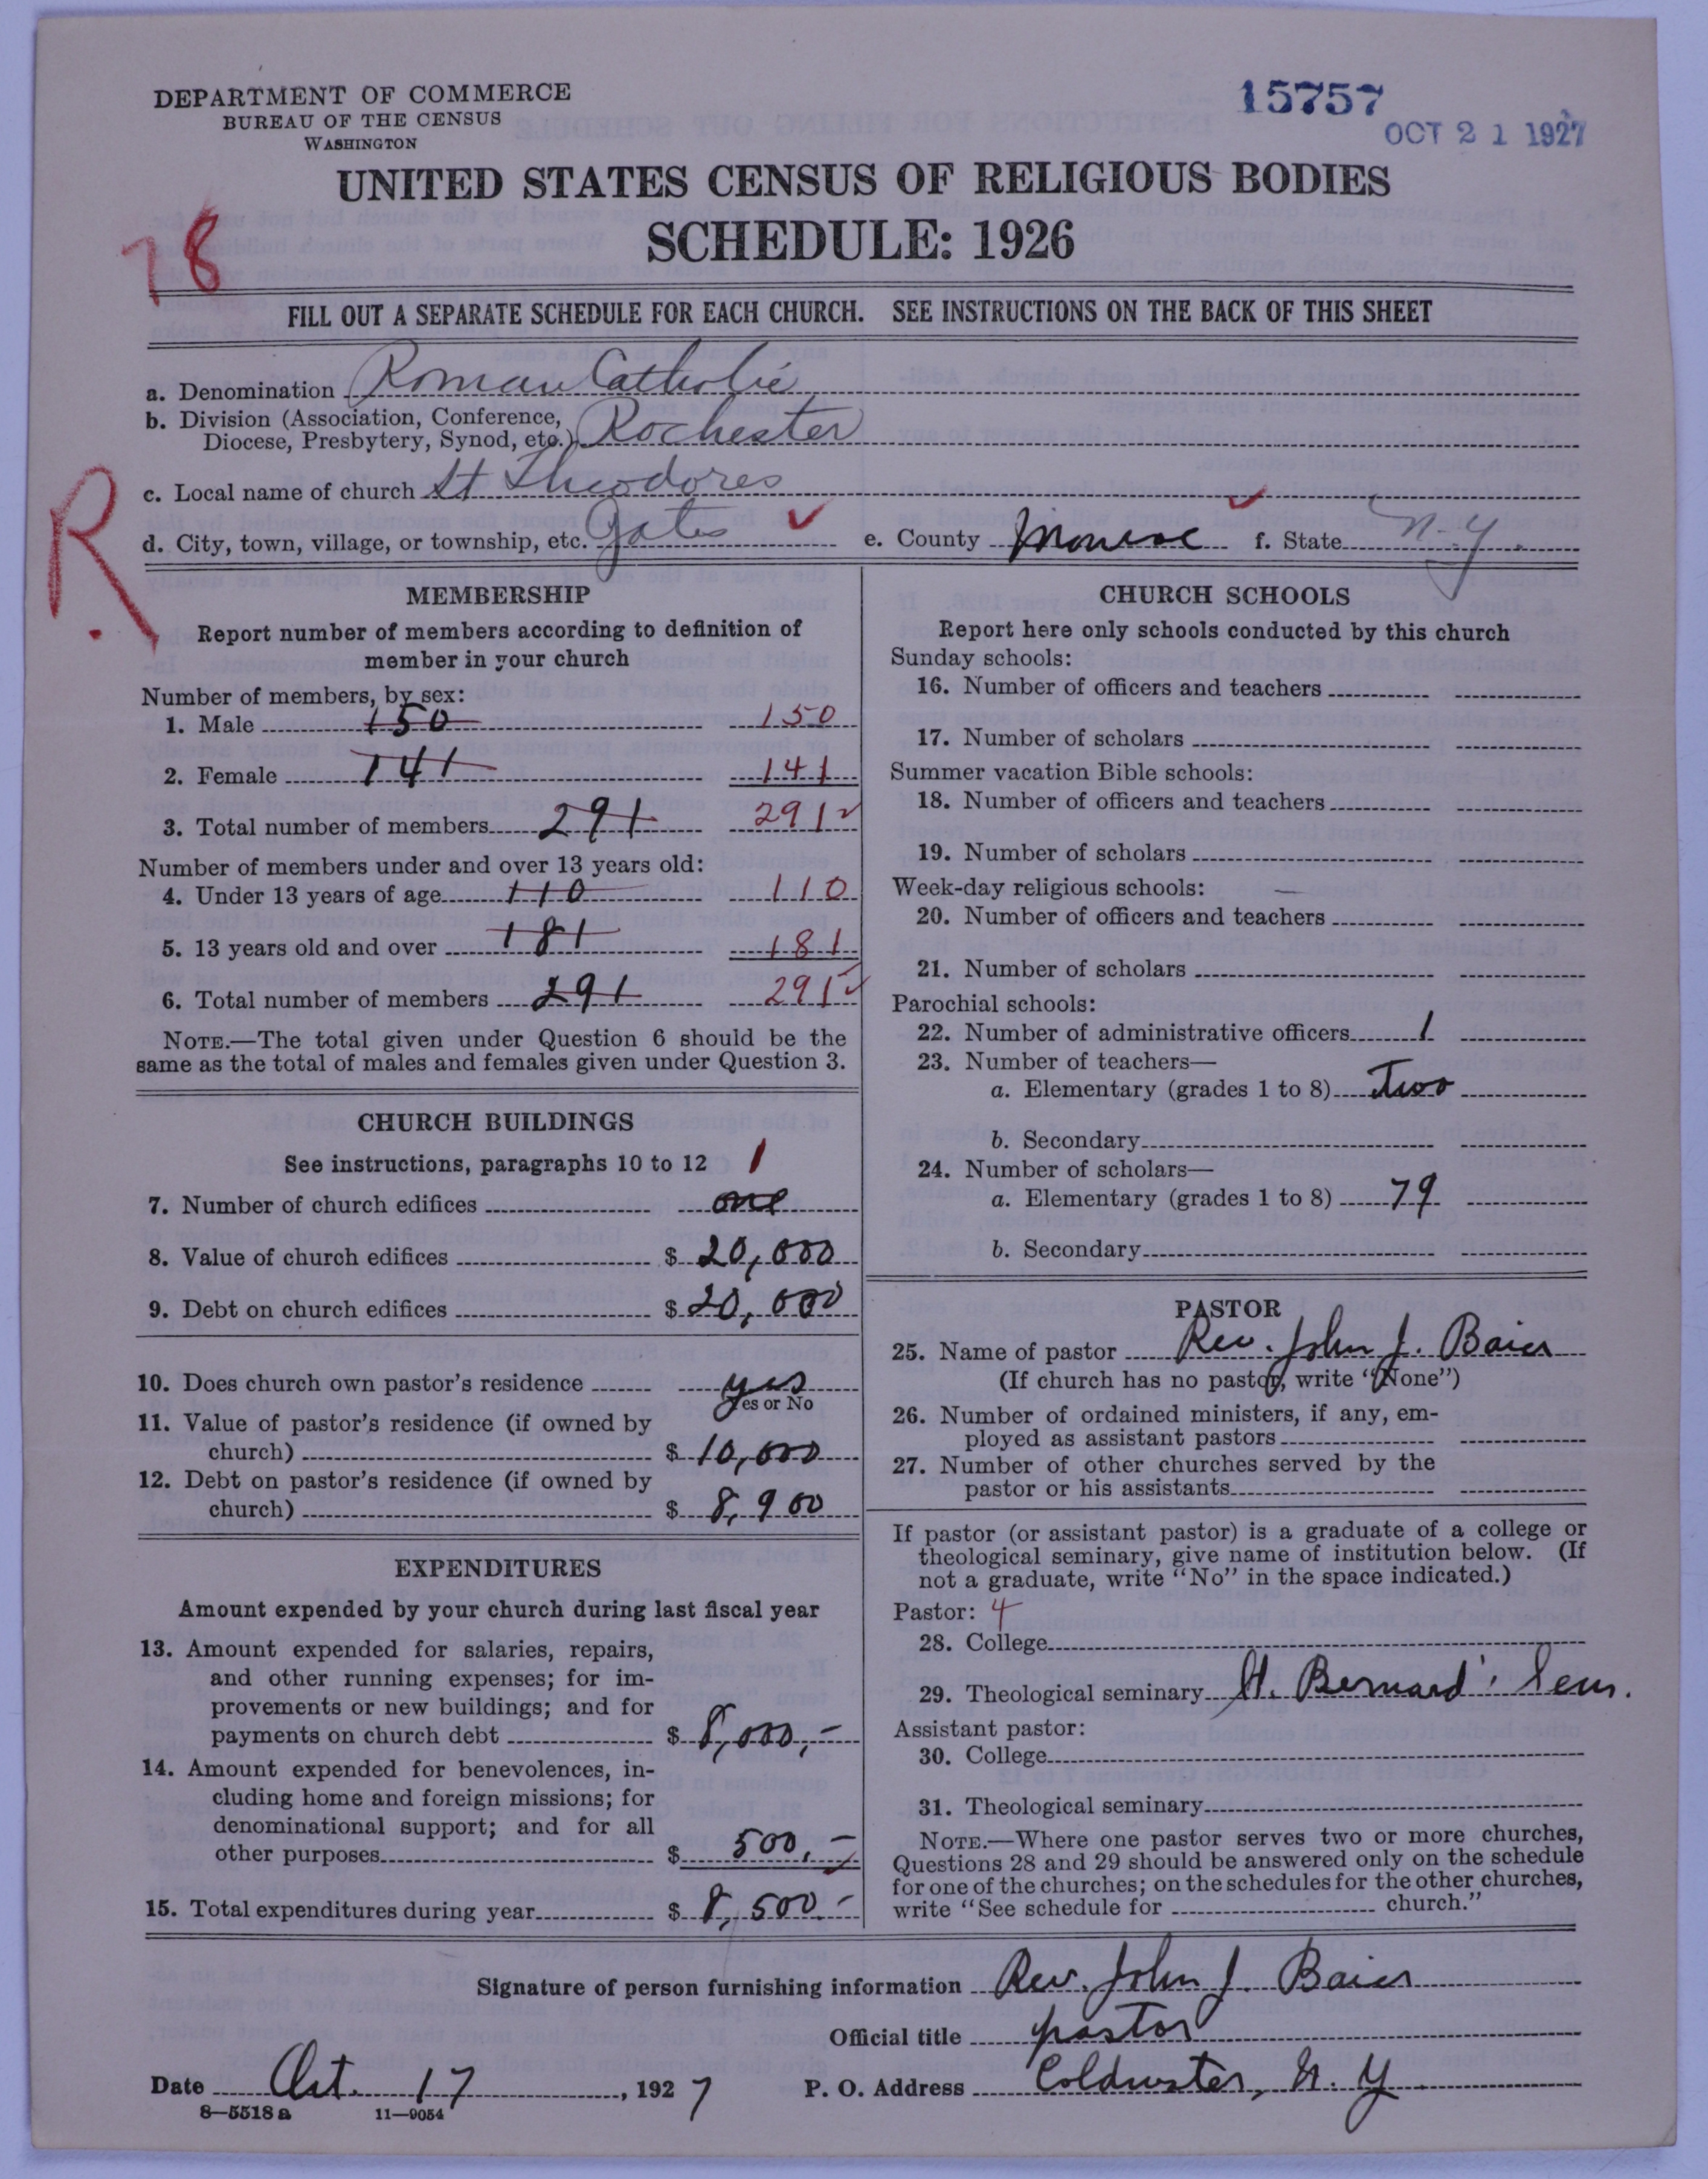 DEPARTMENT OF COMMERCE
BUREAU OF THE CENSUS
WASHINGTON
15757
OCT 21 1927
UNITED STATES CENSUS OF RELIGIOUS BODIES
SCHEDULE: 1926
78
FILL OUT A SEPARATE SCHEDULE FOR EACH CHURCH. SEE INSTRUCTIONS ON THE BACK OF THIS SHEET
a. Denomination Roman Catholic
b. Division (Association, Conference,
Diocese, Presbytery, Synod, etc.) Rochester
R.
c. Local name of church St Theodores
d. City, town, village, or township, etc. Gates e. County Monroe f. State N-Y.
MEMBERSHIP
Report number of members according to definition of
member in your church
Number of members, by sex:
1. Male 150 150
2. Female 141 141
3. Total number of members 291 291
Number of members under and over 13 years old:
4. Under 13 years of age 110 110
5. 13 years old and over 181 181
6. Total number of members 291 291
NOTE.—The total given under Question 6 should be the
same as the total of males and females given under Question 3.
CHURCH BUILDINGS
See instructions, paragraphs 10 to 12 1
7. Number of church edifices one
8. Value of church edifices $ 20,000
9. Debt on church edifices $ 20,000
10. Does church own pastor's residence yes
Yes or No
11. Value of pastor's residence (if owned by
church) $ 10,000
12. Debt on pastor's residence (if owned by
church) $ 8,900
EXPENDITURES
Amount expended by your church during last fiscal year
13. Amount expended for salaries, repairs,
and other running expenses; for im-
provements or new buildings; and for
payments on church debt $ 8,000,-
14. Amount expended for benevolences, in-
cluding home and foreign missions; for
denominational support; and for all
other purposes $ 500,-
15. Total expenditures during year $ 8,500.-
CHURCH SCHOOLS
Report here only schools conducted by this church
Sunday schools:
16. Number of officers and teachers
17. Number of scholars
Summer vacation Bible schools:
18. Number of officers and teachers
19. Number of scholars
Week-day religious schools: —
20. Number of officers and teachers
21. Number of scholars
Parochial schools:
22. Number of administrative officers 1
23. Number of teachers—
a. Elementary (grades 1 to 8) Two
b. Secondary
24. Number of scholars—
a. Elementary (grades 1 to 8) 79
b. Secondary
PASTOR
25. Name of pastor Rev. John J. Baier
(If church has no pastor, write "None")
26. Number of ordained ministers, if any, em-
ployed as assistant pastors
27. Number of other churches served by the
pastor or his assistants
If pastor (or assistant pastor) is a graduate of a college or
theological seminary, give name of institution below. (If
not a graduate, write "No" in the space indicated.)
Pastor: 4
28. College
29. Theological seminary St. Bernard's Sem.
Assistant pastor:
30. College
31. Theological seminary
NOTE.—Where one pastor serves two or more churches,
Questions 28 and 29 should be answered only on the schedule
for one of the churches; on the schedules for the other churches,
write "See schedule for church."
Signature of person furnishing information Rev. John J. Baier
Official title pastor
Date Oct. 17, 1927 P. O. Address Coldwater, N. Y.
8—5518 a 11—9054